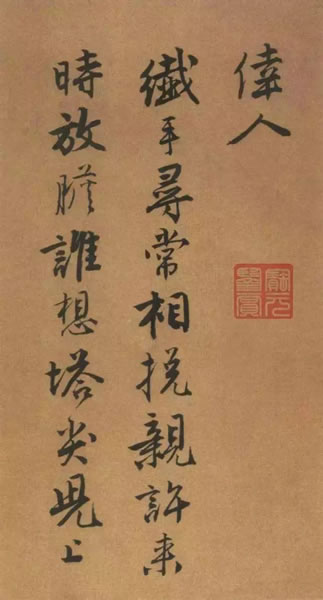 偉人
纖手尋常相挽親許来
時放膽誰想塔尖兜上